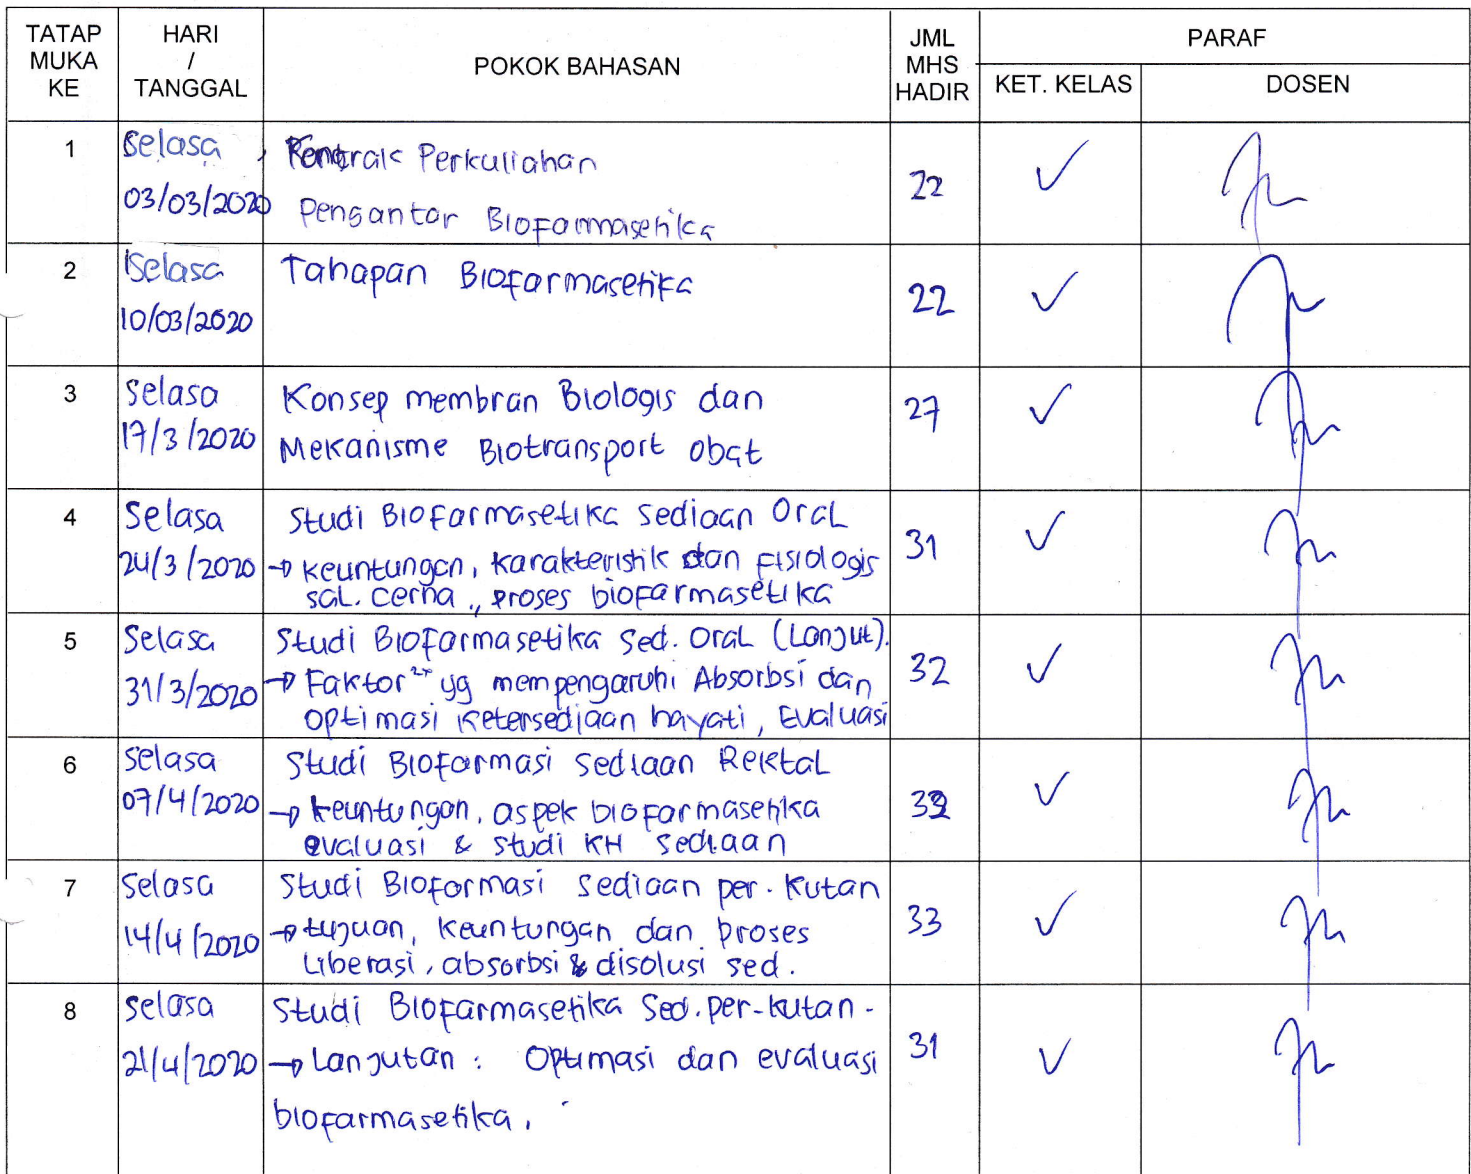 TATAP MUKA KE
HARI / TANGGAL
POKOK BAHASAN
JML MHS HADIR
PARAF
KET. KELAS
DOSEN
1
Selasa,
03/03/2020
Kontrak Perkuliahan
Pengantar Biofarmasetika
22
2
Selasa
10/03/2020
Tahapan Biofarmasetika
22
3
Selasa
17/3/2020
Konsep membran Biologis dan
Mekanisme Biotransport obat
27
4
Selasa
24/3/2020
Studi Biofarmasetika Sediaan Oral
→ keuntungan, karakteristik dan Fisiologis
sal. cerna, proses biofarmasetika
31
5
Selasa
31/3/2020
Studi Biofarmasetika Sed. Oral (Lanjut).
→ Faktor²⁺ yg mempengaruhi Absorbsi dan
optimasi ketersediaan hayati, Evaluasi
32
6
Selasa
07/4/2020
Studi Biofarmasi Sediaan Rektal
→ keuntungan, aspek biofarmasetika
evaluasi & studi KH sediaan
7
Selasa
14/4/2020
Studi Biofarmasi Sediaan per-kutan
→ tujuan, keuntungan dan proses
Liberasi, absorbsi & disolusi sed.
33
8
Selasa
21/4/2020
Studi Biofarmasetika Sed. per-kutan-
→ Lanjutan : Optimasi dan evaluasi
biofarmasetika.
31